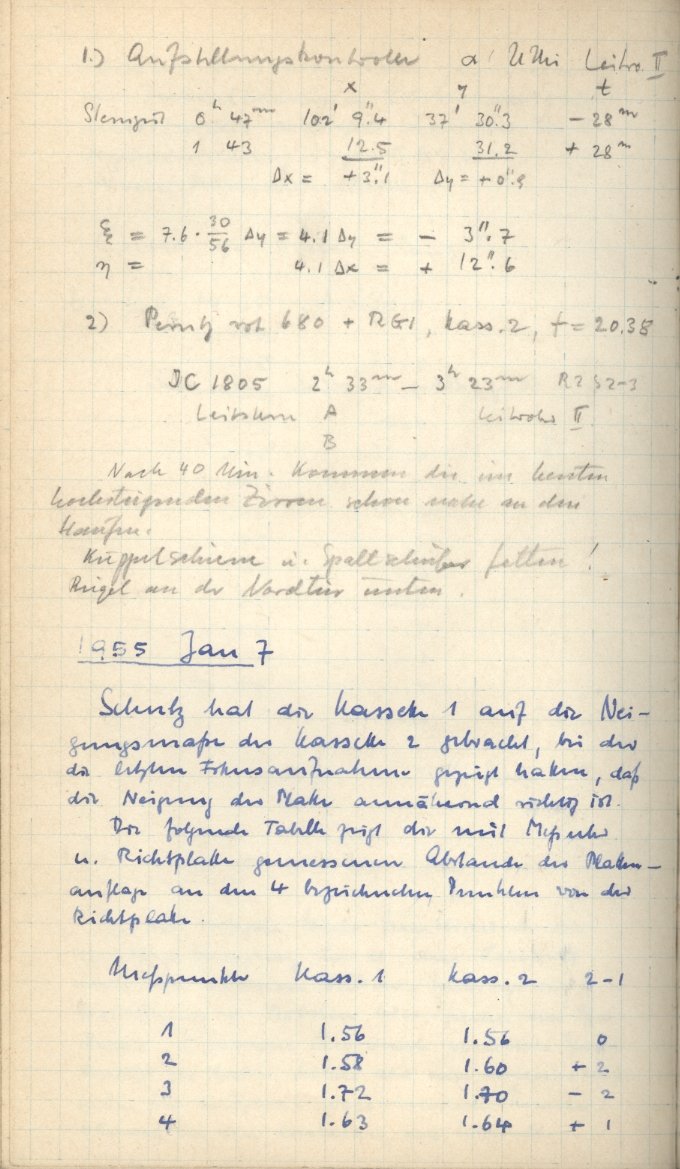 1.) Aufstellungskontrolle α UMi Leitro. II
x y t
Sternzeit 0ʰ 47ᵐ 102' 9".4 37' 30".3 - 28ᵐ
1 43 12.5 31.2 + 28ᵐ
Δx = +3".1 Δy = +0".9
ξ = 7.6 · 30/56 Δy = 4.1 Δy = - 3".7
η = 4.1 Δx = + 12".6
2) Perutz rot 680 + RG1, Kass. 2, f = 20.38
IC 1805 2ʰ 33ᵐ - 3ʰ 23ᵐ R2 S2-3
Leitstern A Leitrohr II.
B
Nach 40 Min. kommen die im
hochsteigenden Zirren schon nahe an den
Haufen.
Kuppelschiene u. Spaltschieber fetten!
Riegel an der Nordtür unten.
1955 Jan 7
Schulz hat die Kassette 1 auf die Nei-
gungsmaße der Kassette 2 gebracht, bei der
die letzten Fokusaufnahmen gezeigt haben, daß
die Neigung der Platte annähernd richtig ist.
Die folgende Tabelle zeigt die mit Meßuhr
u. Richtplatte gemessenen Abstände der Platten-
auflage an den 4 bezeichneten Punkten von der
Richtplatte.
Meßpunkte Kass. 1 Kass. 2 2-1
1 1.56 1.56 0
2 1.58 1.60 + 2
3 1.72 1.70 - 2
4 1.63 1.64 + 1